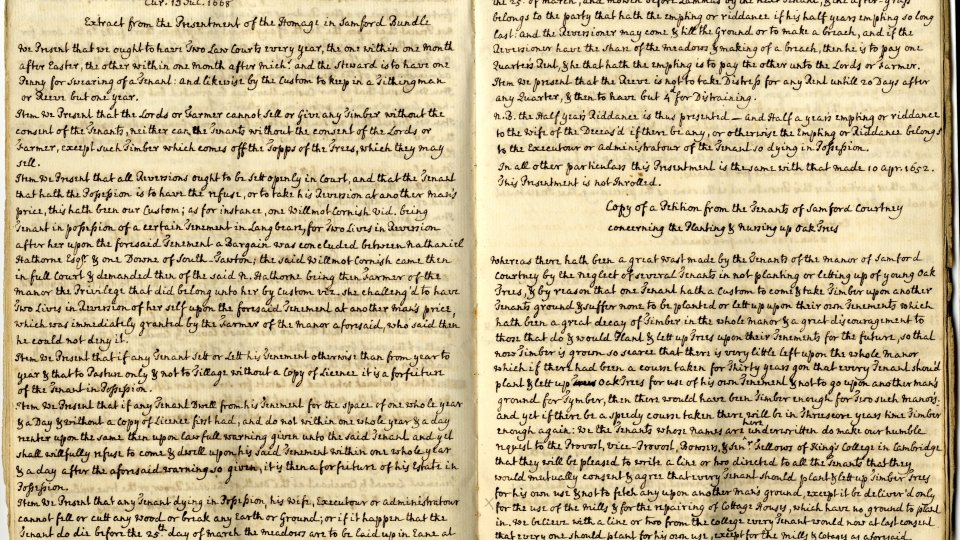 Cur. 13 Jul. 1668
Extract from the Presentment of the Homage in Samford Bundle
We Present that we ought to have Two Law Courts every year, the one within one month
after Easter, the other within one Month after Mich: and the Steward is to have one
Penny for swearing of a Tenant: and likewise by the Custom to keep in a Tithingman
or Reeve but one year.
Item We Present that the Lords or Farmer cannot Sell or Give any Timber without the
consent of the Tenants, neither can the Tenants without the consent of the Lords or
Farmer, except such Timber which comes off the Topps of the Trees, which they may
sell.
Item We Present that all Reversions ought to be Sett openly in Court, and that the Tenant
that hath the Possession is to have the refuse, or to take his Reversion at another man's
price, this hath been our Custom; as for instance, one Willmot Cornish Vid. being
Tenant in possession of a certain Tenement in Langbear, for Two Lives in Reversion
after her upon the foresaid Tenement a Bargain was concluded between Nathaniel
Hathorne Esqr. & one Downe of South-Tawton; the said Willmot Cornish came then
in full Court & demanded then of the said N. Hathorne being then Farmer of the
manor the Privilege that did belong unto her by Custom viz. she challeng'd to have
Two Lives in Reversion of her self upon the foresaid Tenement at another man's price,
which was immediately granted by the Farmer of the Manor aforesaid, who said then
he could not deny it.
Item We Present that if any Tenant Sett or Lett his Tenement otherwise than from year to
year & that to Pasture only & not to Tillage without a Copy of Licence it is a forfeiture
of the Tenant in Possession.
Item We Present that if any Tenant Dwell from his Tenement for the space of one whole year
& a Day & without a Copy of Licence first had, and do not within one whole year & a day
reenter upon the same then upon lawfull warning given unto the said Tenant and yet
shall willfully refuse to come & dwell upon his said Tenement within one whole year
& a day after the aforesaid warning so given, it is then a forfeiture of his Estate in
Possession.
Item We Present that any Tenant dying in Possession his wife, Executour or administratour
cannot fell or cutt any wood or break any Earth or Ground; or if it happen that the
Tenant do die before the 25th day of march the meadows are to be laid up in Eane at
the 25. of march, and mowen before Lammas by the next Tenant, & the after-grass
belongs to the party that hath the empting or riddance if his half years empting so long
last: and the Reversioner may come & till the Ground or to make a breach, and if the
Reversioner have the Share of the meadows & making of a breach, then he is to pay one
Quarters Rent, & he that hath the empting is to pay the other unto the Lords or Farmer.
Item We present that the Reeve is not to take Distress for any Rent until 20 Days after
any Quarter, & then to have but 4d for Distraining.
N.B. the Half years Riddance is thus presented — and Half a years empting or riddance
to the Wife of the Deceas'd if there be any, or otherwise the Empting or Riddance belongs
to the Executour or administratour of the Tenant so dying in Possession.
In all other particulars this Presentment is the same with that made 10 apr. 1652.
This Presentment is not Inrolled.
Copy of a Petition from the Tenants of Samford Courtney
concerning the Planting & Nursing up Oak Trees
Whereas there hath been a great wast made by the Tenants of the manor of Samford
Courtney by the neglect of several Tenants in not planting or letting up of young Oak
Trees, & by reason that one Tenant hath a Custom to come & take Timber upon another
Tenants ground & suffer none to be planted or lett up upon their own Tenements which
hath been a great decay of Timber in the whole manor & a great discouragement to
those that do & would Plant & lett up Trees upon their Tenements for the future, so that
now Timber is grown so scarce that there is very little left upon the whole Manor
which if there had been a course taken for Thirty years gon that every Tenant should
plant & lett up Oak Trees for use of his own Tenement & not to go upon another man's
ground for Tymber, then there would have been Timber enough for Two such Manors:
and yet if there be a speedy course taken there will be in Threescore years time Timber
enough again: We the Tenants whose Names are here underwritten do make our humble
request to the Provost, vice-Provost, Bowsers, & Senr. Fellows of King's College in Cambridge
that they will be pleased to write a line or two directed to all the Tenants that they
would mutually consent & agree that every Tenant should plant & lett up Timber Trees
for his own use & not to fetch any upon another man's ground, except it be deliver'd only
for the use of the Mills & for the repairing of Cottage Houses, which have no ground to plant
in. We believe with a line or two from the College every Tenant would now at last consent
that every one should plant for his own use, except for the Mills & Cotages as aforesaid